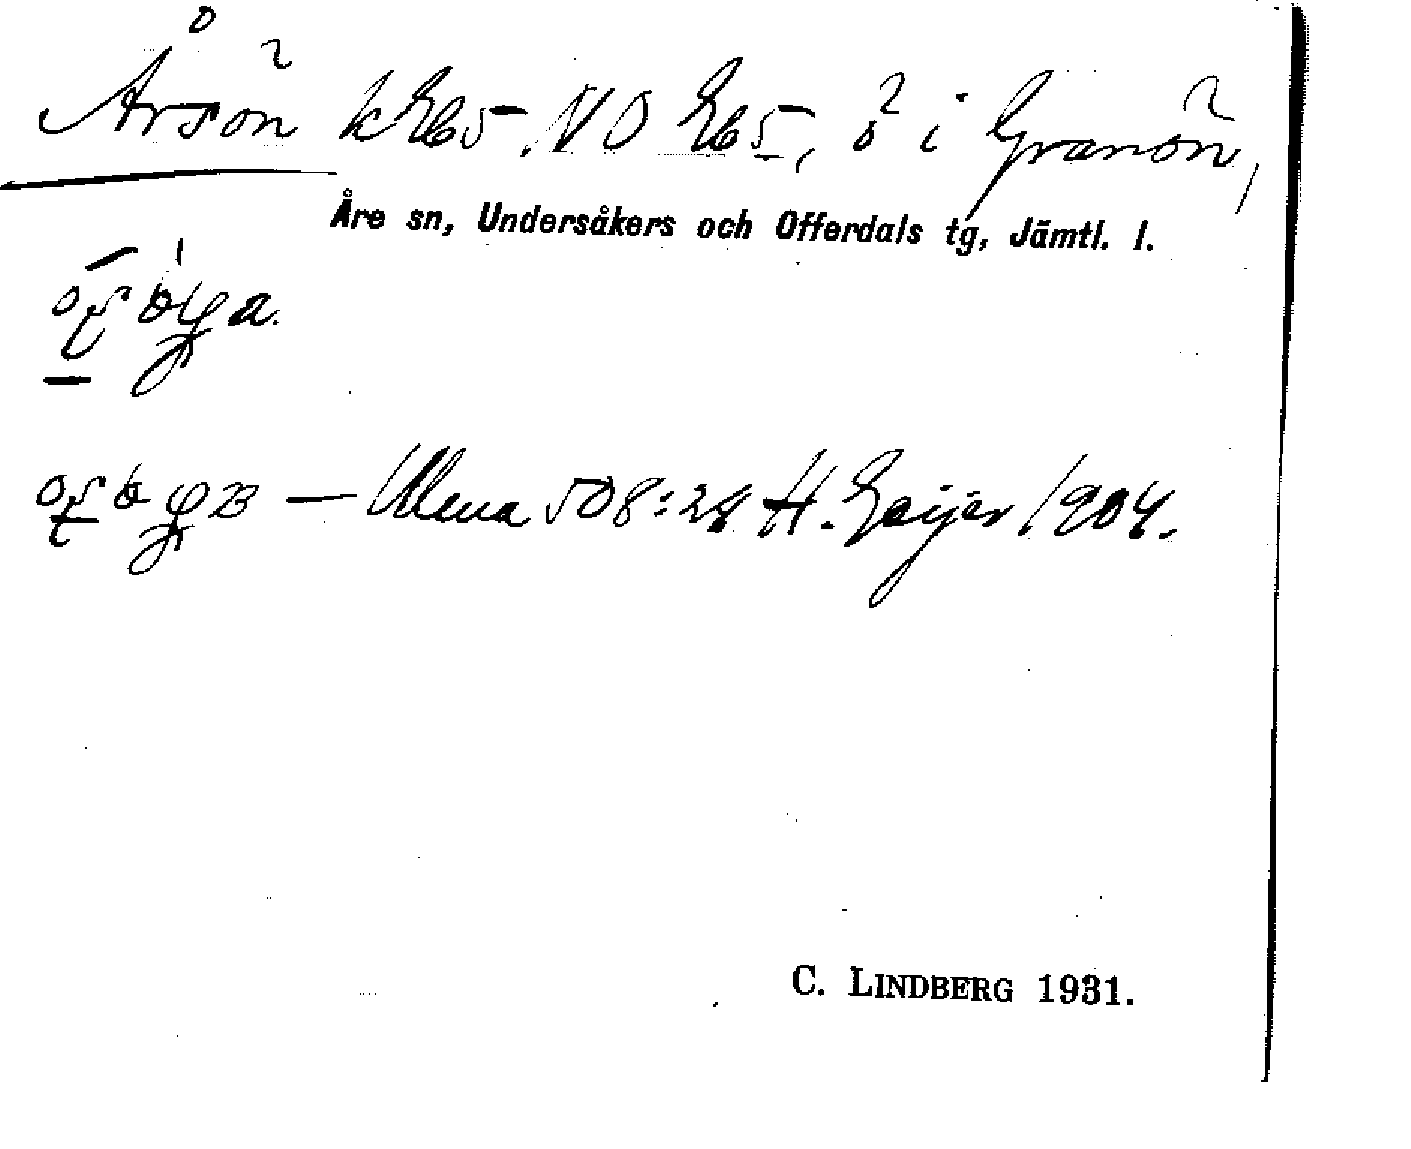 Årsön k Eb5. NO Eb5, ö i Granön,
Åre sn, Undersåkers och Offerdals tg, Jämtl. l.
— Ulena 508:24 H. Geijer 1904.
C. LINDBERG 1931.